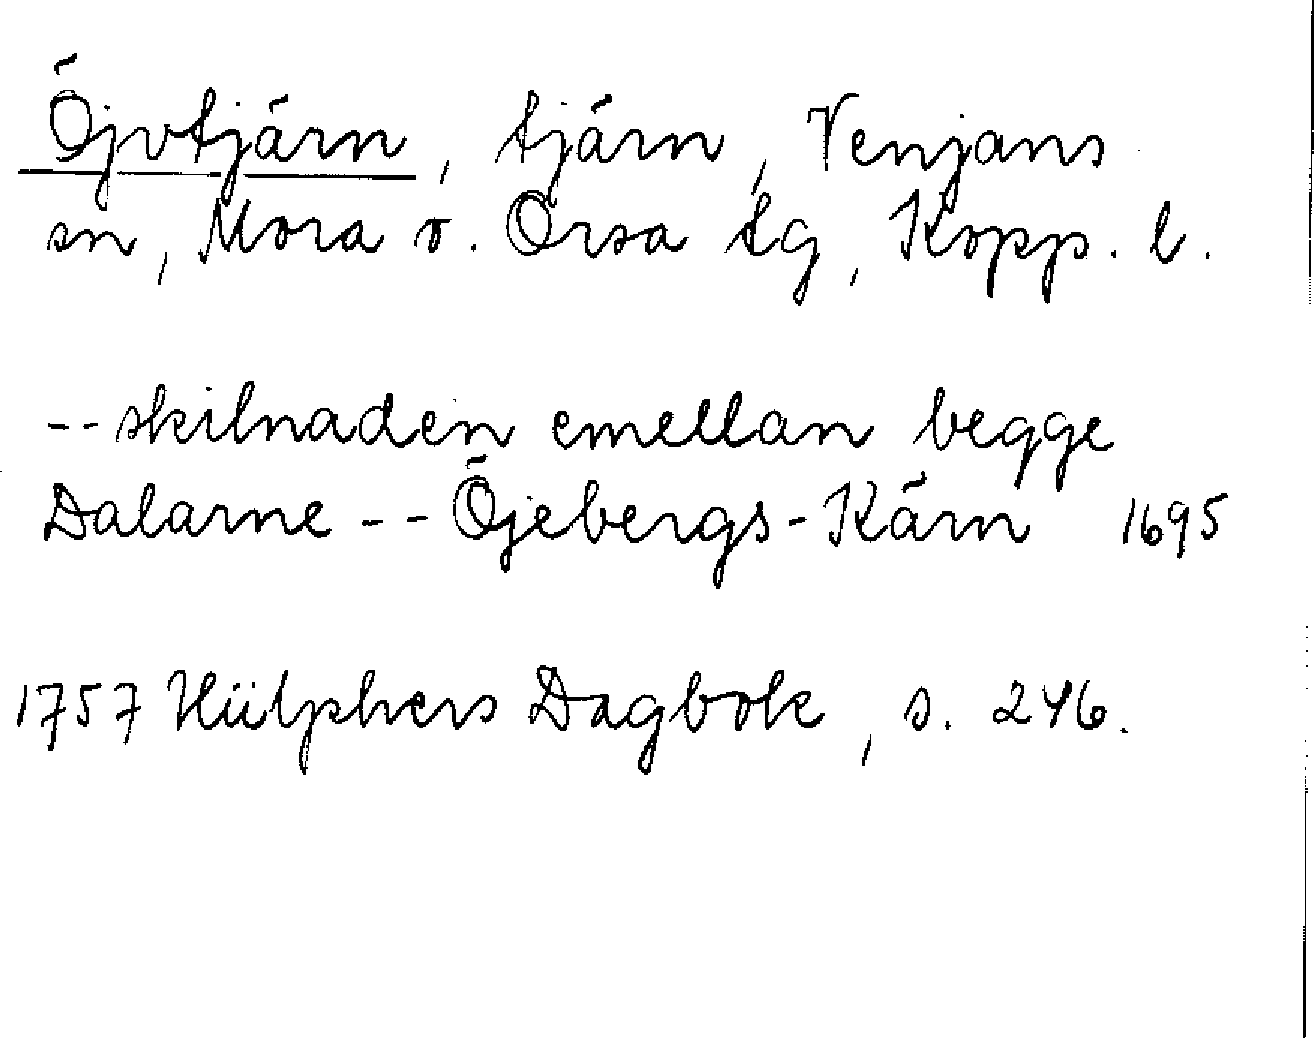 Öjvtjärn, tjärn, Venjans
sn, Mora o. Orsa tg, Kopp. l.
--skilnaden emellan begge
Dalarne -- Öjebergs-Kärn 1695
1757 Hülphers Dagbok, s. 246.